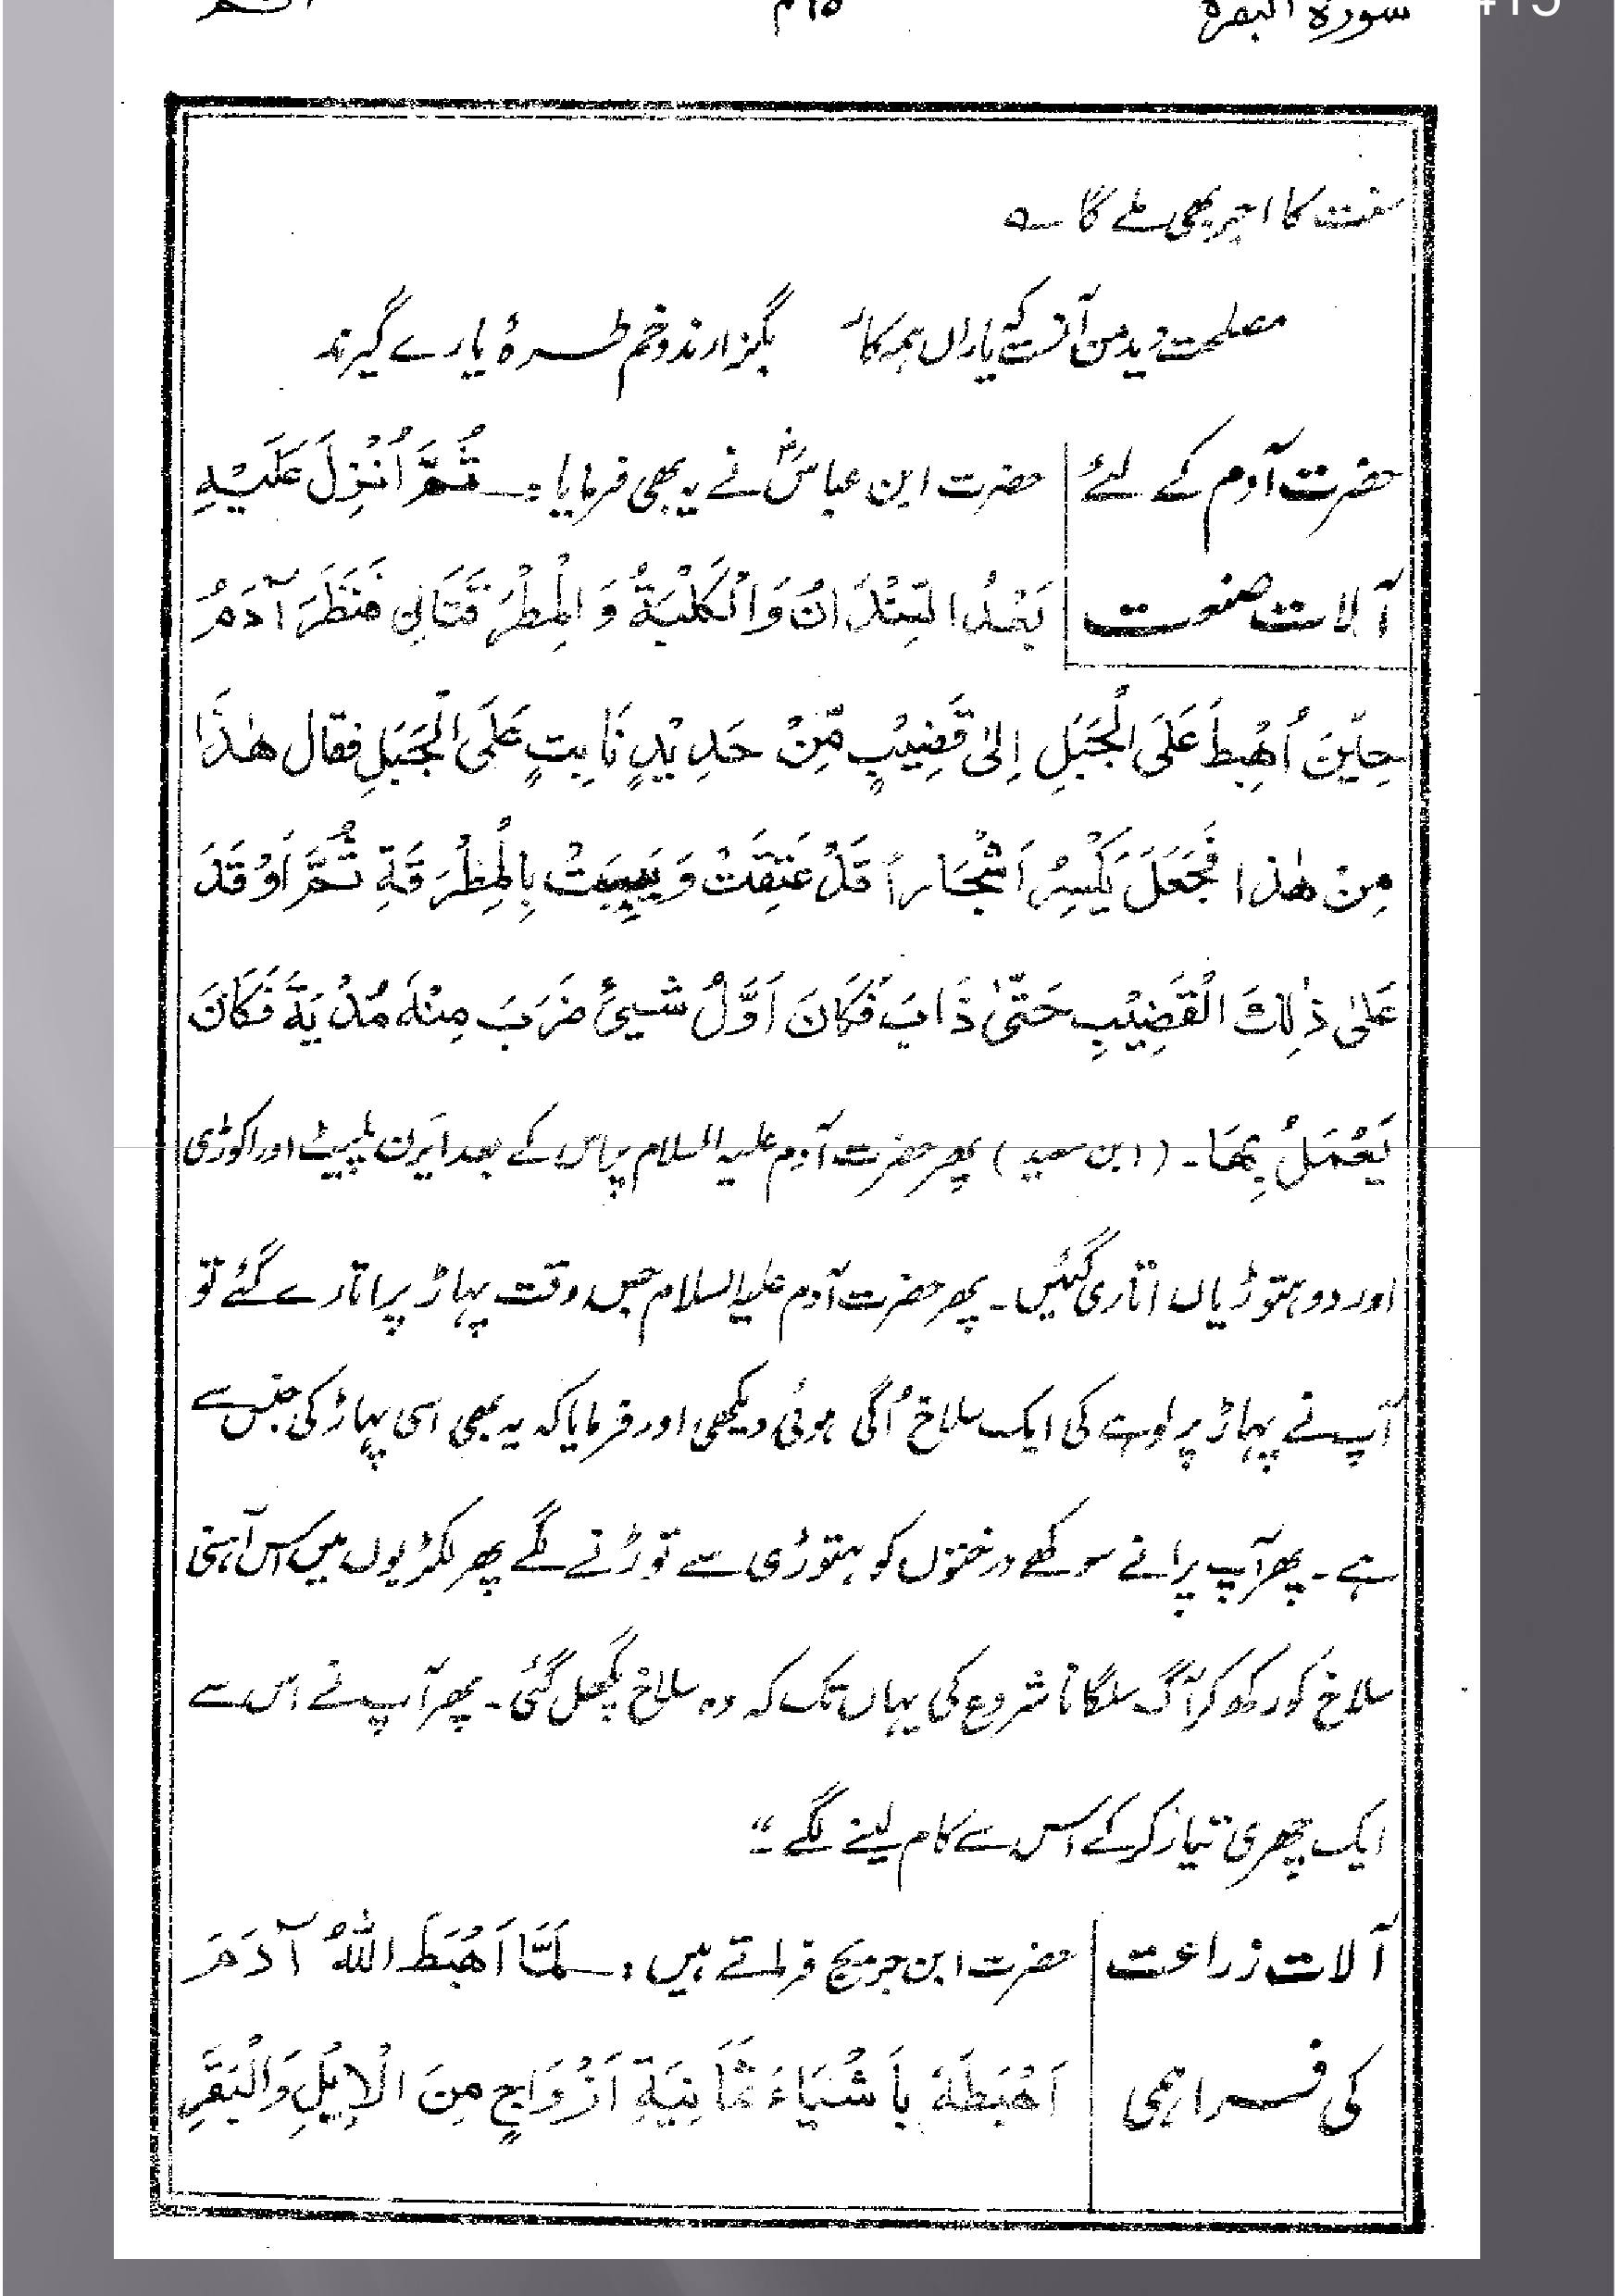 سورۃ البقرۃ ۴۱۵
سنت کا اجر بھی ملے گا ؎
مصلحت دید من آنست کہ یاراں ہمہ کار بگزارند و خم طرۂ یارے گیرند
حضرت آدم کے لئے
آلات صنعت
حضرت ابن عباسؓ نے یہ بھی فرمایا:۔ ثُمَّ اُنْزِلَ عَلَيْهِ
بَعْدُ السِّنْدَانُ وَالْكَلْبَةُ وَ الْمِطْرَقَتَانِ فَنَظَرَ آدَمُ
حِيْنَ اُهْبِطَ عَلَى الْجَبَلِ اِلىٰ قَضِيْبٍ مِّنْ حَدِيْدٍ نَابِتٍ عَلَى الْجَبَلِ فقال هٰذَا
مِنْ هٰذا فَجَعَلَ يَكْسِرُ اَشْجَاراً قَدْ عَتِقَتْ وَ يَبِسَتْ بِالْمِطْرَقَةِ ثُمَّ اَوْقَدَ
عَلىٰ ذٰلِكَ الْقَضِيْبِ حَتّىٰ ذَابَ فَكَانَ اَوَّلُ شَيئٍ ضَرَبَ مِنْهُ مُدْيَةً فَكَانَ
يَعْمَلُ بِهَا۔ (ابن سعید) پھر حضرت آدم علیہ السلام پر اس کے بعد ایرن پلیٹ اور اکوڑی
اور دو ہتوڑیاں اتاری گئیں۔ پھر حضرت آدم علیہ السلام جس وقت پہاڑ پر اتارے گئے تو
آپ نے پہاڑ پر لوہے کی ایک سلاخ اُگی ہوئی دیکھی اور فرمایا کہ یہ بھی اسی پہاڑ کی جنس سے
ہے۔ پھر آپ پرانے سوکھے درختوں کو ہتوڑی سے توڑنے لگے پھر لکڑیوں میں اس آہنی
سلاخ کو رکھ کر آگ سلگانا شروع کی یہاں تک کہ وہ سلاخ پگھل گئی۔ پھر آپ نے اس سے
ایک چھری تیار کر کے اس سے کام لینے لگے۔“
آلات زراعت
کی فراہمی
حضرت ابن جریج فرماتے ہیں: لَمَّا اَهْبَطَ اللّٰهُ آدَمَ
اَهْبَطَهٗ بِاَشْيَاءَ ثَمَانِيَةِ اَزْوَاجٍ مِنَ الْاِبِلِ وَالْبَقَرِ